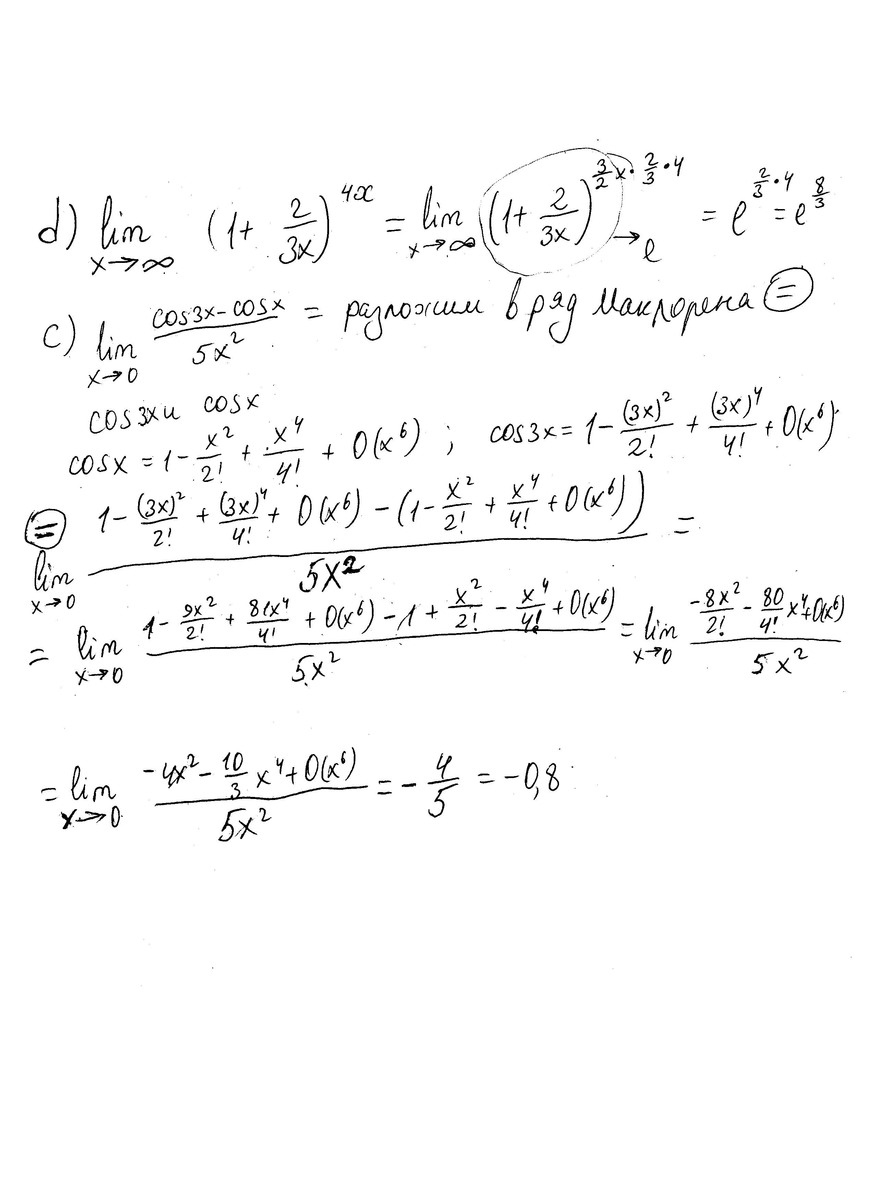 d) lim x→∞ (1+ 2/3x)^4x = lim x→∞ (1+ 2/3x)^(3/2 x · 2/3 · 4) → e = e^(2/3 · 4) = e^(8/3)
c) lim x→0 (cos3x-cosx)/5x² = разложим в ряд Маклорена =
cos3x и cosx
cosx = 1 - x²/2! + x⁴/4! + O(x⁶) ; cos3x = 1 - (3x)²/2! + (3x)⁴/4! + O(x⁶)
= lim x→0 (1 - (3x)²/2! + (3x)⁴/4! + O(x⁶) - (1 - x²/2! + x⁴/4! + O(x⁶)))/5x² =
= lim x→0 (1 - 9x²/2! + 81x⁴/4! + O(x⁶) - 1 + x²/2! - x⁴/4! + O(x⁶))/5x² = lim x→0 (-8x²/2! - 80/4! x⁴ + O(x⁶))/5x²
= lim x→0 (-4x² - 10/3 x⁴ + O(x⁶))/5x² = - 4/5 = -0,8